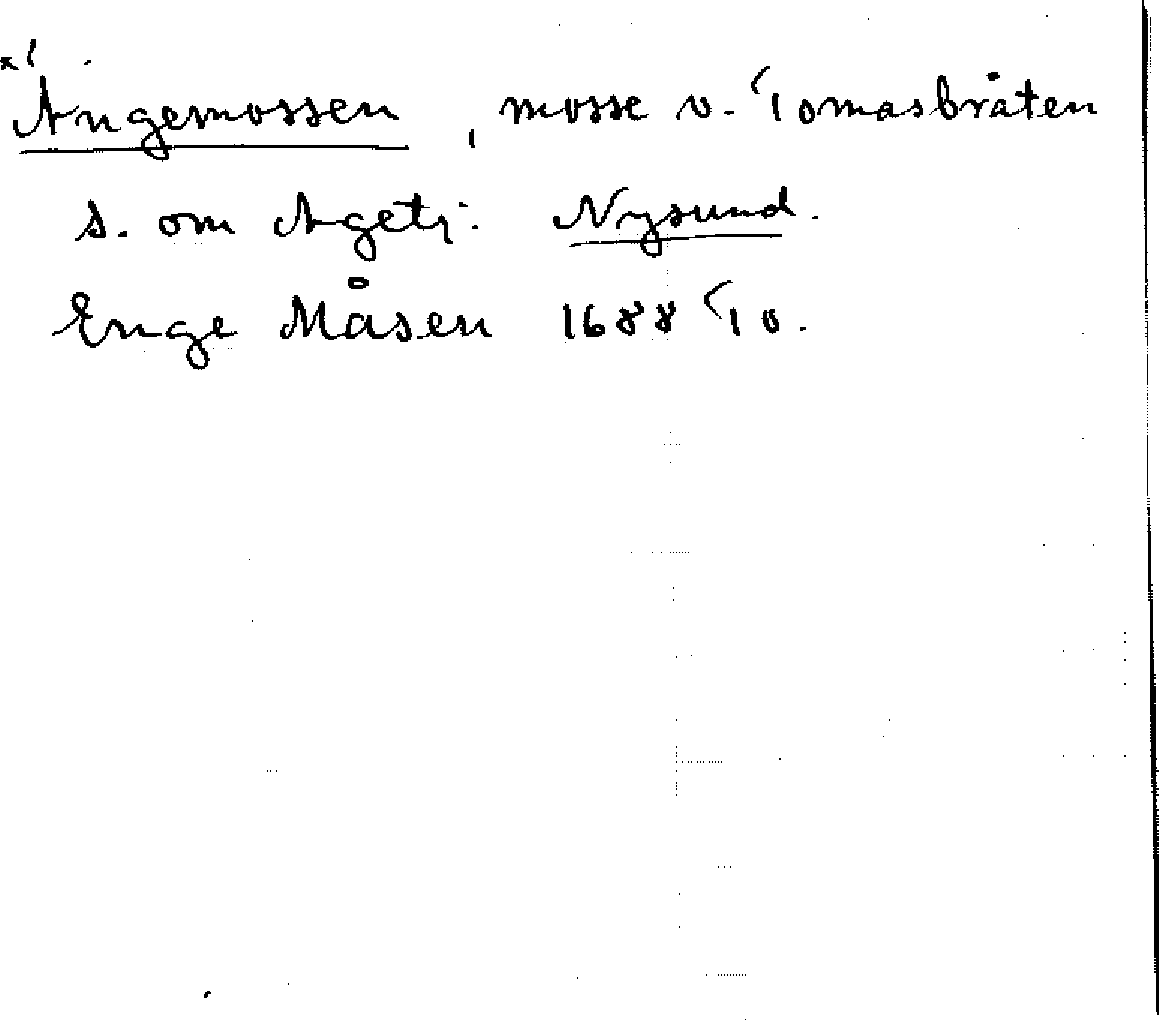 x/
Angemossen, mosse v. Tomasbråten
s. om Agetj. Nysund.
Enge Måsen 1688 To.